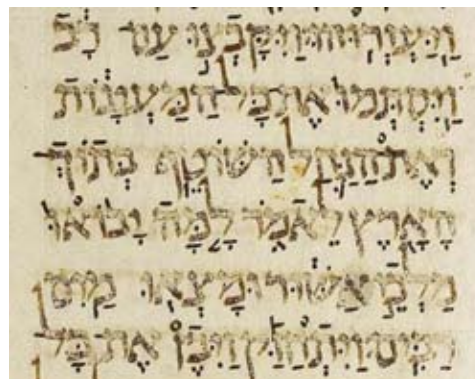 וַיַּעְזְרוּהוּ׃ וַיִּקָּבְצוּ עַם רָב
וַיִּסְתְּמוּ אֶת כָּל הַמַּעְיָנוֹת
וְאֶת הַנַּחַל הַשּׁוֹטֵף בְּתוֹךְ
הָאָרֶץ לֵאמֹר לָמָּה יָבוֹאוּ
מַלְכֵי אַשּׁוּר וּמָצְאוּ מַיִם
רַבִּים׃ וַיִּתְחַזַּק וַיִּבֶן אֶת כָּל